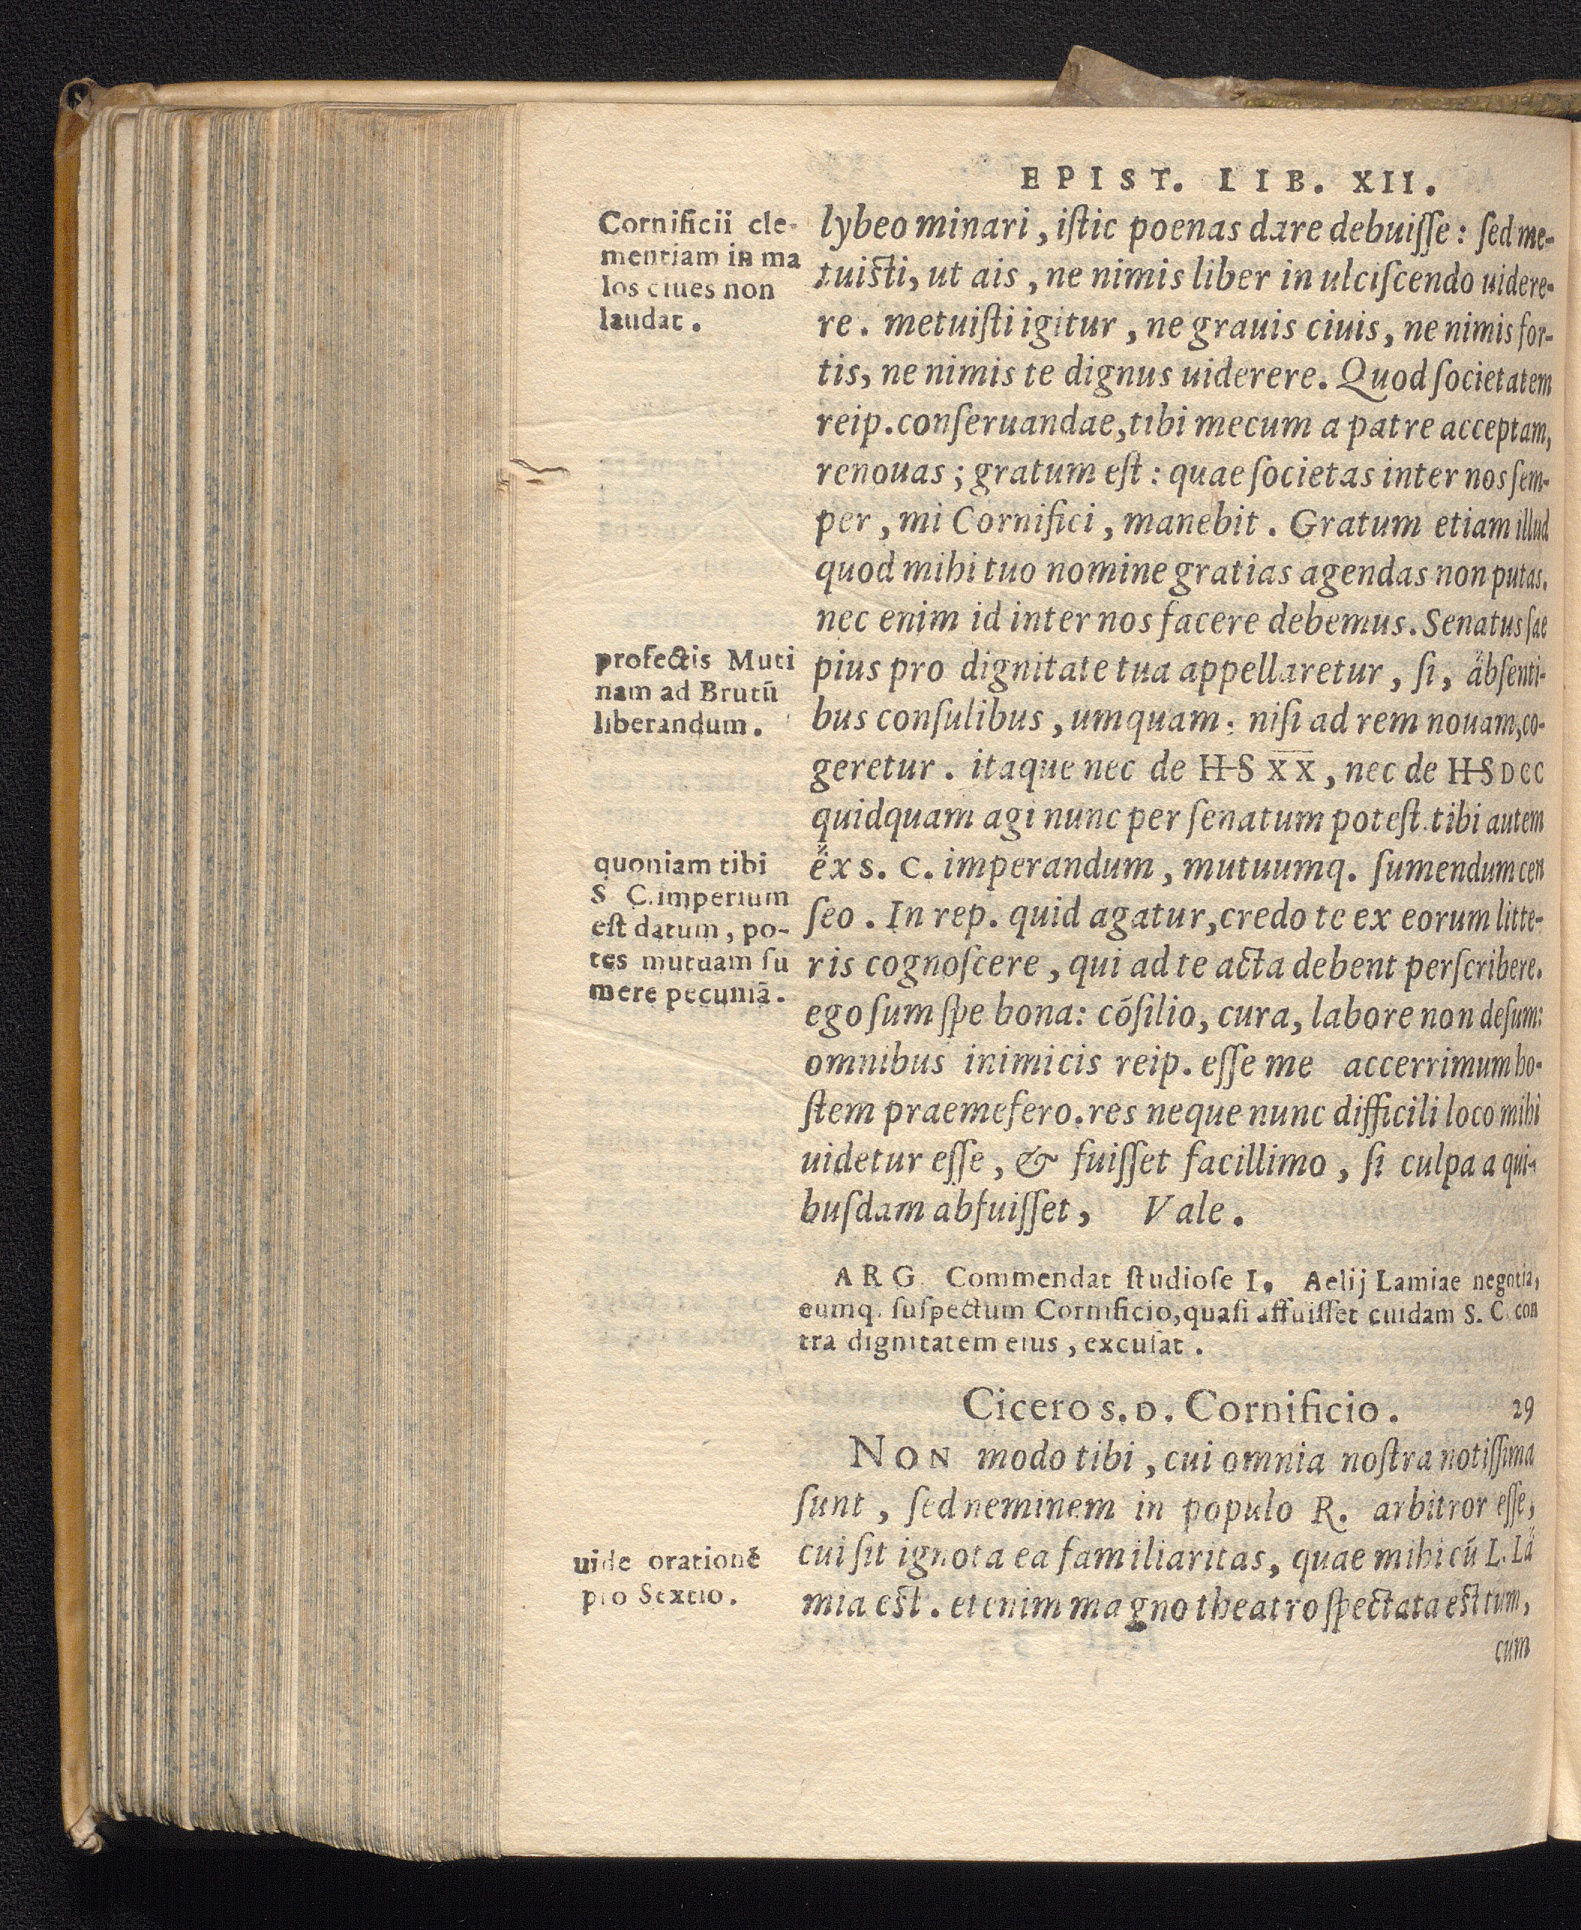 EPIST. LIB. XII.
Cornificii cle-
mentiam in ma
los ciues non
laudat.
lybeo minari, iſtic poenas dare debuiſſe: ſed me-
tuiſti, ut ais, ne nimis liber in ulciſcendo uidere-
re. metuiſti igitur, ne grauis ciuis, ne nimis for-
tis, ne nimis te dignus uiderere. Quod ſocietatem
reip. conſeruandae, tibi mecum a patre acceptam,
renouas; gratum eſt: quae ſocietas inter nos ſem-
per, mi Cornifici, manebit. Gratum etiam illud
quod mihi tuo nomine gratias agendas non putas.
nec enim id inter nos facere debemus. Senatus ſae
profectis Muti
nam ad Brutū
liberandum.
pius pro dignitate tua appellaretur, ſi, abſenti-
bus conſulibus, umquam, niſi ad rem nouam, co-
geretur. itaque nec de HS X̅X̅, nec de HS DCC
quidquam agi nunc per ſenatum poteſt. tibi autem
quoniam tibi
S C. imperium
eſt datum, po-
tes mutuam ſu
mere pecuniā.
ex S. C. imperandum, mutuumq. ſumendum cen
ſeo. In rep. quid agatur, credo te ex eorum litte-
ris cognoſcere, qui ad te acta debent perſcribere.
ego ſum ſpe bona: cōſilio, cura, labore non deſum:
omnibus inimicis reip. eſſe me accerrimum ho-
ſtem prae me fero. res neque nunc difficili loco mihi
uidetur eſſe, & fuiſſet facillimo, ſi culpa a qui-
buſdam abfuiſſet, Vale.
ARG. Commendat ſtudioſe L. Aelij Lamiae negotia,
eumq. ſuſpectum Cornificio, quaſi affuiſſet cuidam S. C. con
tra dignitatem eius, excuſat.
Cicero S. D. Cornificio. 29
NON modo tibi, cui omnia noſtra notiſſima
ſunt, ſed neminem in populo R. arbitror eſſe,
uide orationē
pro Sextio.
cui ſit ignota ea familiaritas, quae mihi cū L. La
mia eſt. etenim magno theatro ſpectata eſt tum,
cum